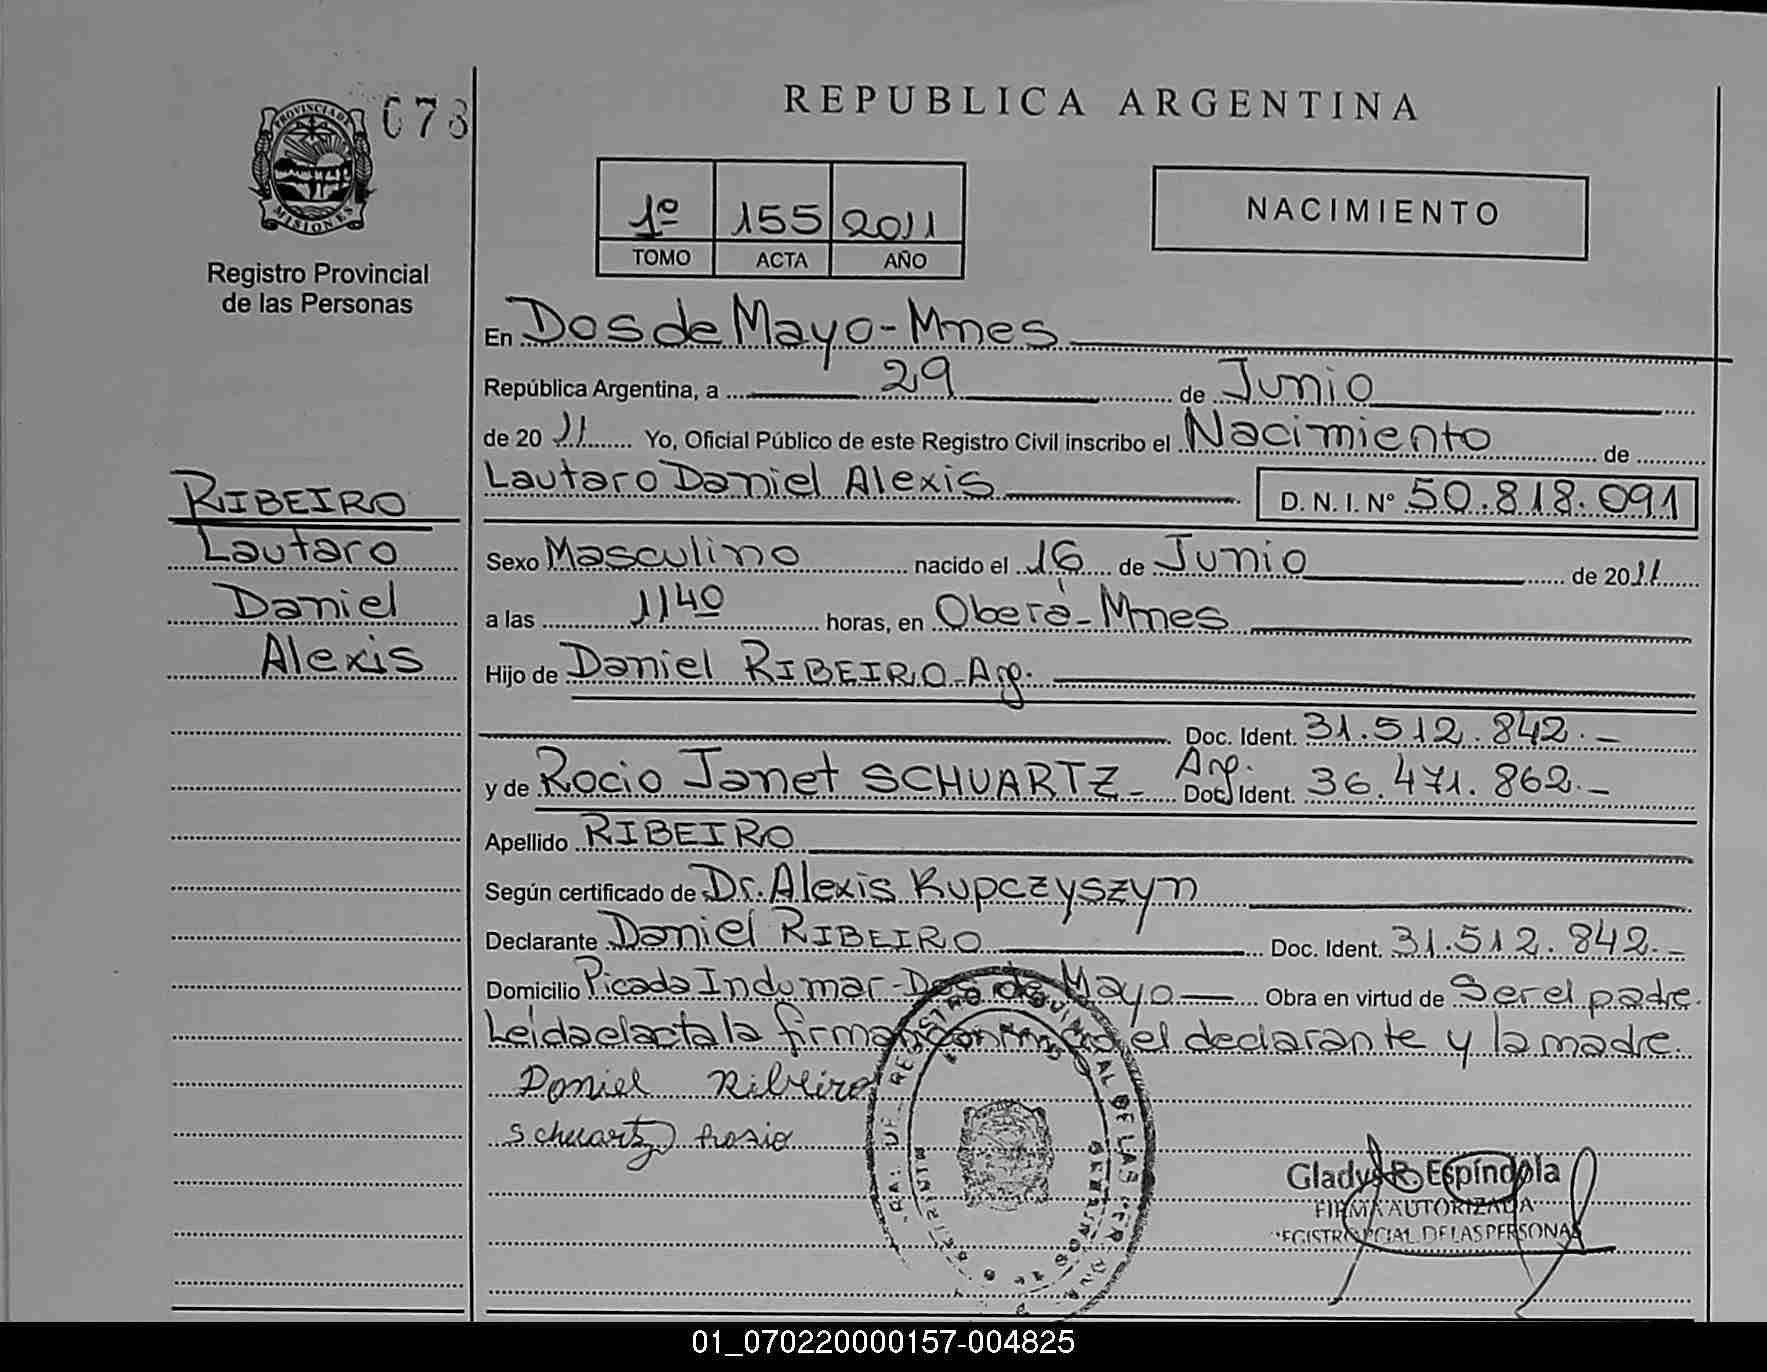 078
PROVINCIA DE
MISIONES
Registro Provincial
de las Personas
RIBEIRO
Lautaro
Daniel
Alexis
REPUBLICA ARGENTINA
1º 155 2011
TOMO ACTA AÑO
NACIMIENTO
En Dos de Mayo - Mnes
República Argentina, a 29 de Junio
de 20 11 Yo, Oficial Público de este Registro Civil inscribo el Nacimiento de
Lautaro Daniel Alexis D. N. I. Nº 50.818.091
Sexo Masculino nacido el 16 de Junio de 2011
a las 1140 horas, en Oberá - Mnes
Hijo de Daniel RIBEIRO - Arg.
Doc. Ident. 31.512.842.-
y de Rocio Janet SCHUARTZ - Arg. Doc. Ident. 36.471.862.-
Apellido RIBEIRO
Según certificado de Dr. Alexis Kupczyszyn
Declarante Daniel RIBEIRO Doc. Ident. 31.512.842.-
Domicilio Picada Indumar - Dos de Mayo Obra en virtud de Ser el padre.
Leída el acta la firman conmigo el declarante y la madre.
Daniel Ribeiro
Schuartz Rosio
Gladys R. Espíndola
FIRMA AUTORIZADA
REGISTRO PCIAL. DE LAS PERSONAS
01_070220000157-004825